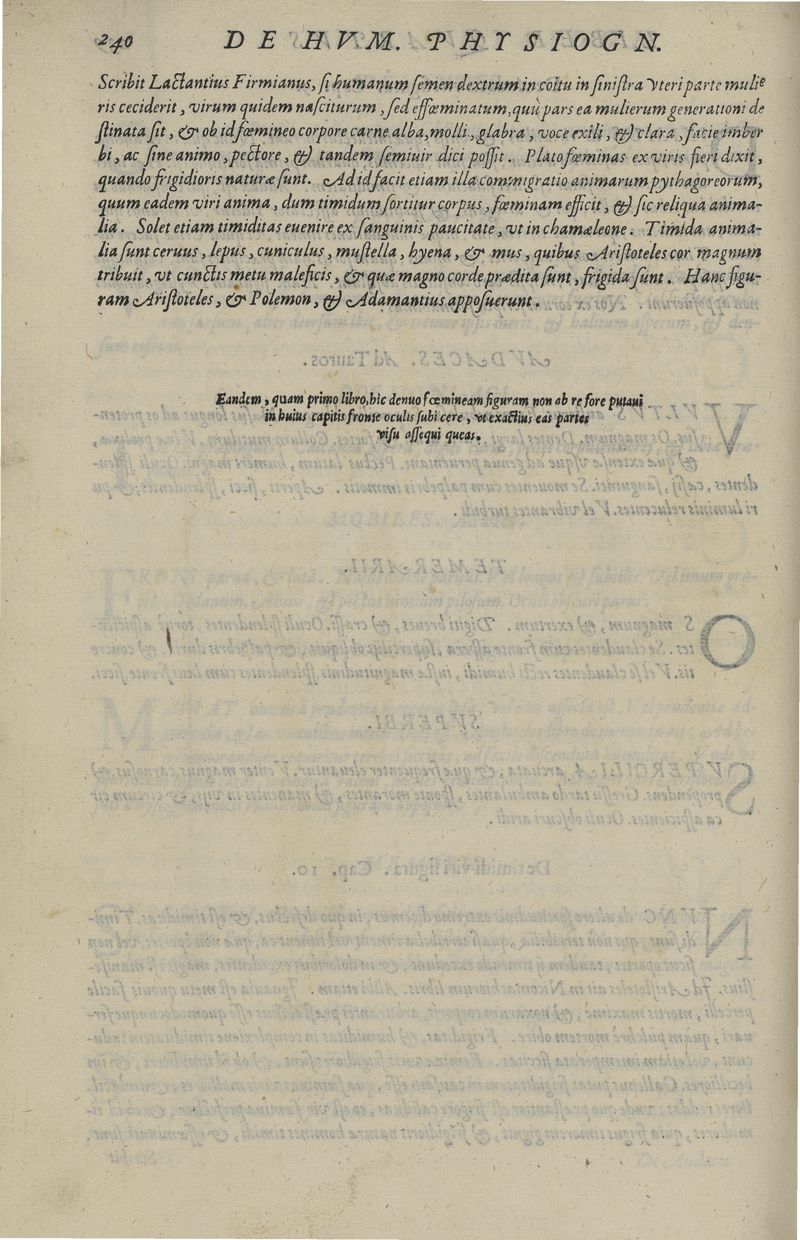 240 DE HVM. PHYSIOGN.
Scribit Lactantius Firmianus, si humanum semen dextrum in coitu in sinistra vteri parte mulie
ris ceciderit, virum quidem nasciturum, sed effœminatum, quū pars ea mulierum generationi de
stinata sit, & ob id fœmineo corpore carne alba, molli, glabra, voce exili, & clara, facie imber
bi, ac sine animo, pectore, & tandem semiuir dici possit. Plato fœminas ex viris fieri dixit,
quando frigidioris naturæ sunt. Ad id facit etiam illa commigratio animarum pythagoreorum,
quum eadem viri anima, dum timidum sortitur corpus, fœminam efficit, & sic reliqua anima-
lia. Solet etiam timiditas euenire ex sanguinis paucitate, vt in chamæleone. Timida anima-
lia sunt ceruus, lepus, cuniculus, mustella, hyena, & mus, quibus Aristoteles cor magnum
tribuit, vt cunctis metu maleficis, & quæ magno corde prædita sunt, frigida sunt. Hanc figu-
ram Aristoteles, & Polemon, & Adamantius apposuerunt.
Eandem, quam primo libro, hic denuo fœmineam figuram non ab re fore putaui
in huius capitis fronte oculis subijcere, vt exactius eas partes
visu assequi queas.